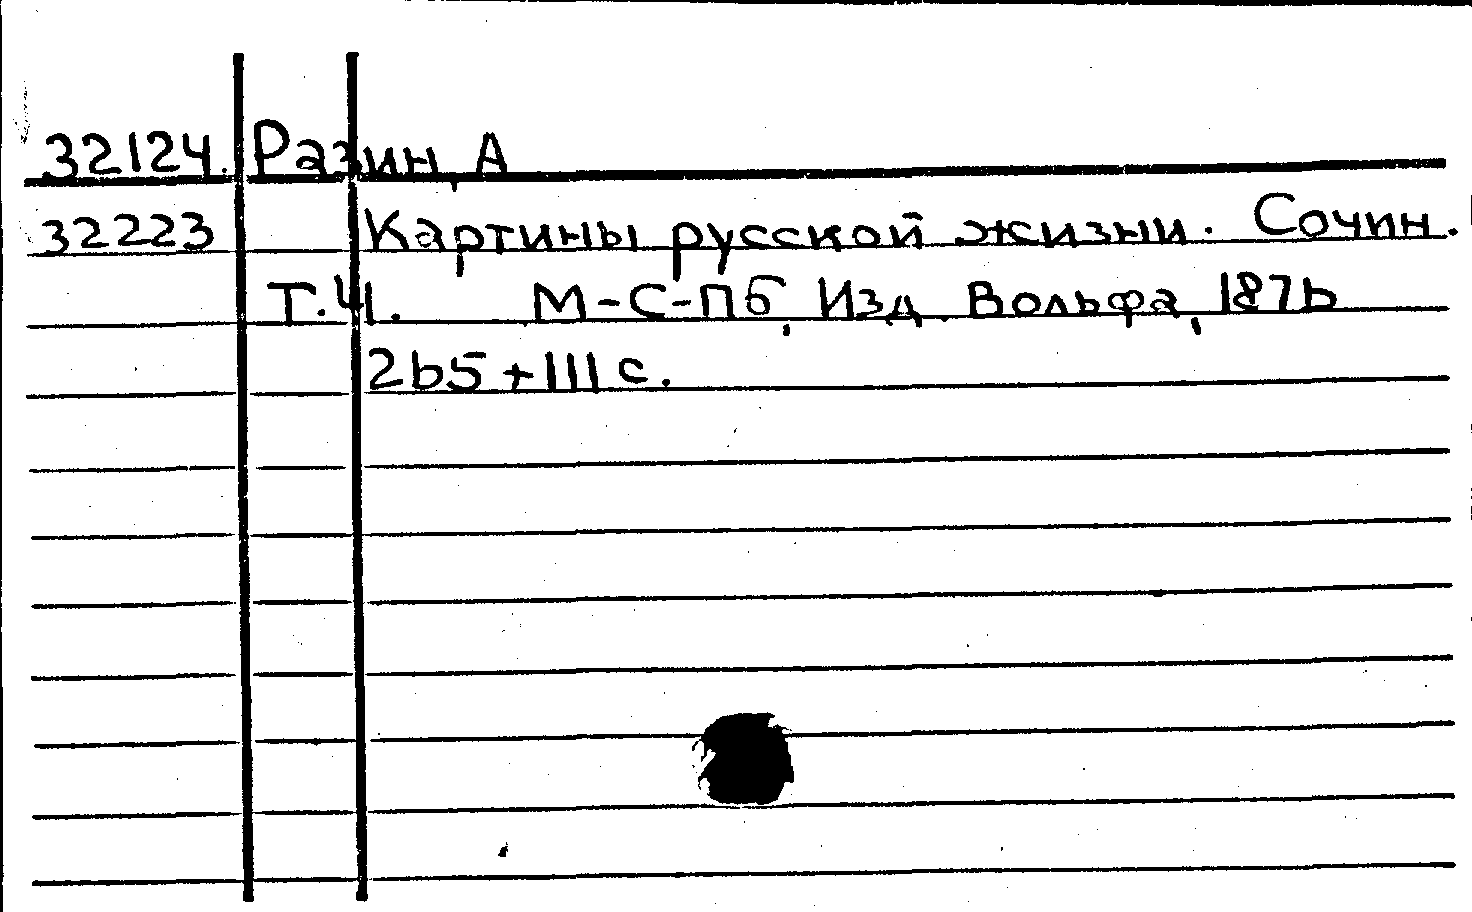 32124. Разин, А
32223 Картины русской жизни. Сочин.
Т.ЧI. М-С-Пб, Изд. Вольфа, 1876
265 + III с.